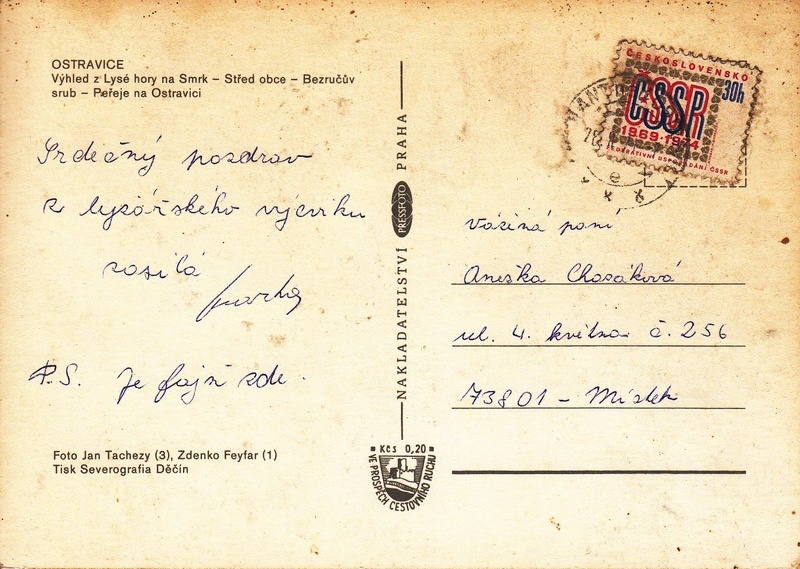 OSTRAVICE
Výhled z Lysé hory na Smrk – Střed obce – Bezručův
srub – Peřeje na Ostravici
Srdečný pozdrav
z lyžařského výcviku
zasílá
P.S. Je fajn zde.
Foto Jan Tachezy (3), Zdenko Feyfar (1)
Tisk Severografia Děčín
NAKLADATELSTVÍ PRESSFOTO PRAHA
Kčs 0,20
VE PROSPĚCH CESTOVNÍHO RUCHU
ČESKOSLOVENSKO
30h
ČSSR
1969-1974
FEDERATIVNÍ USPOŘÁDÁNÍ ČSSR
e
Vážená paní
Anežka
ul. 4. května č. 256
73801 – Místek